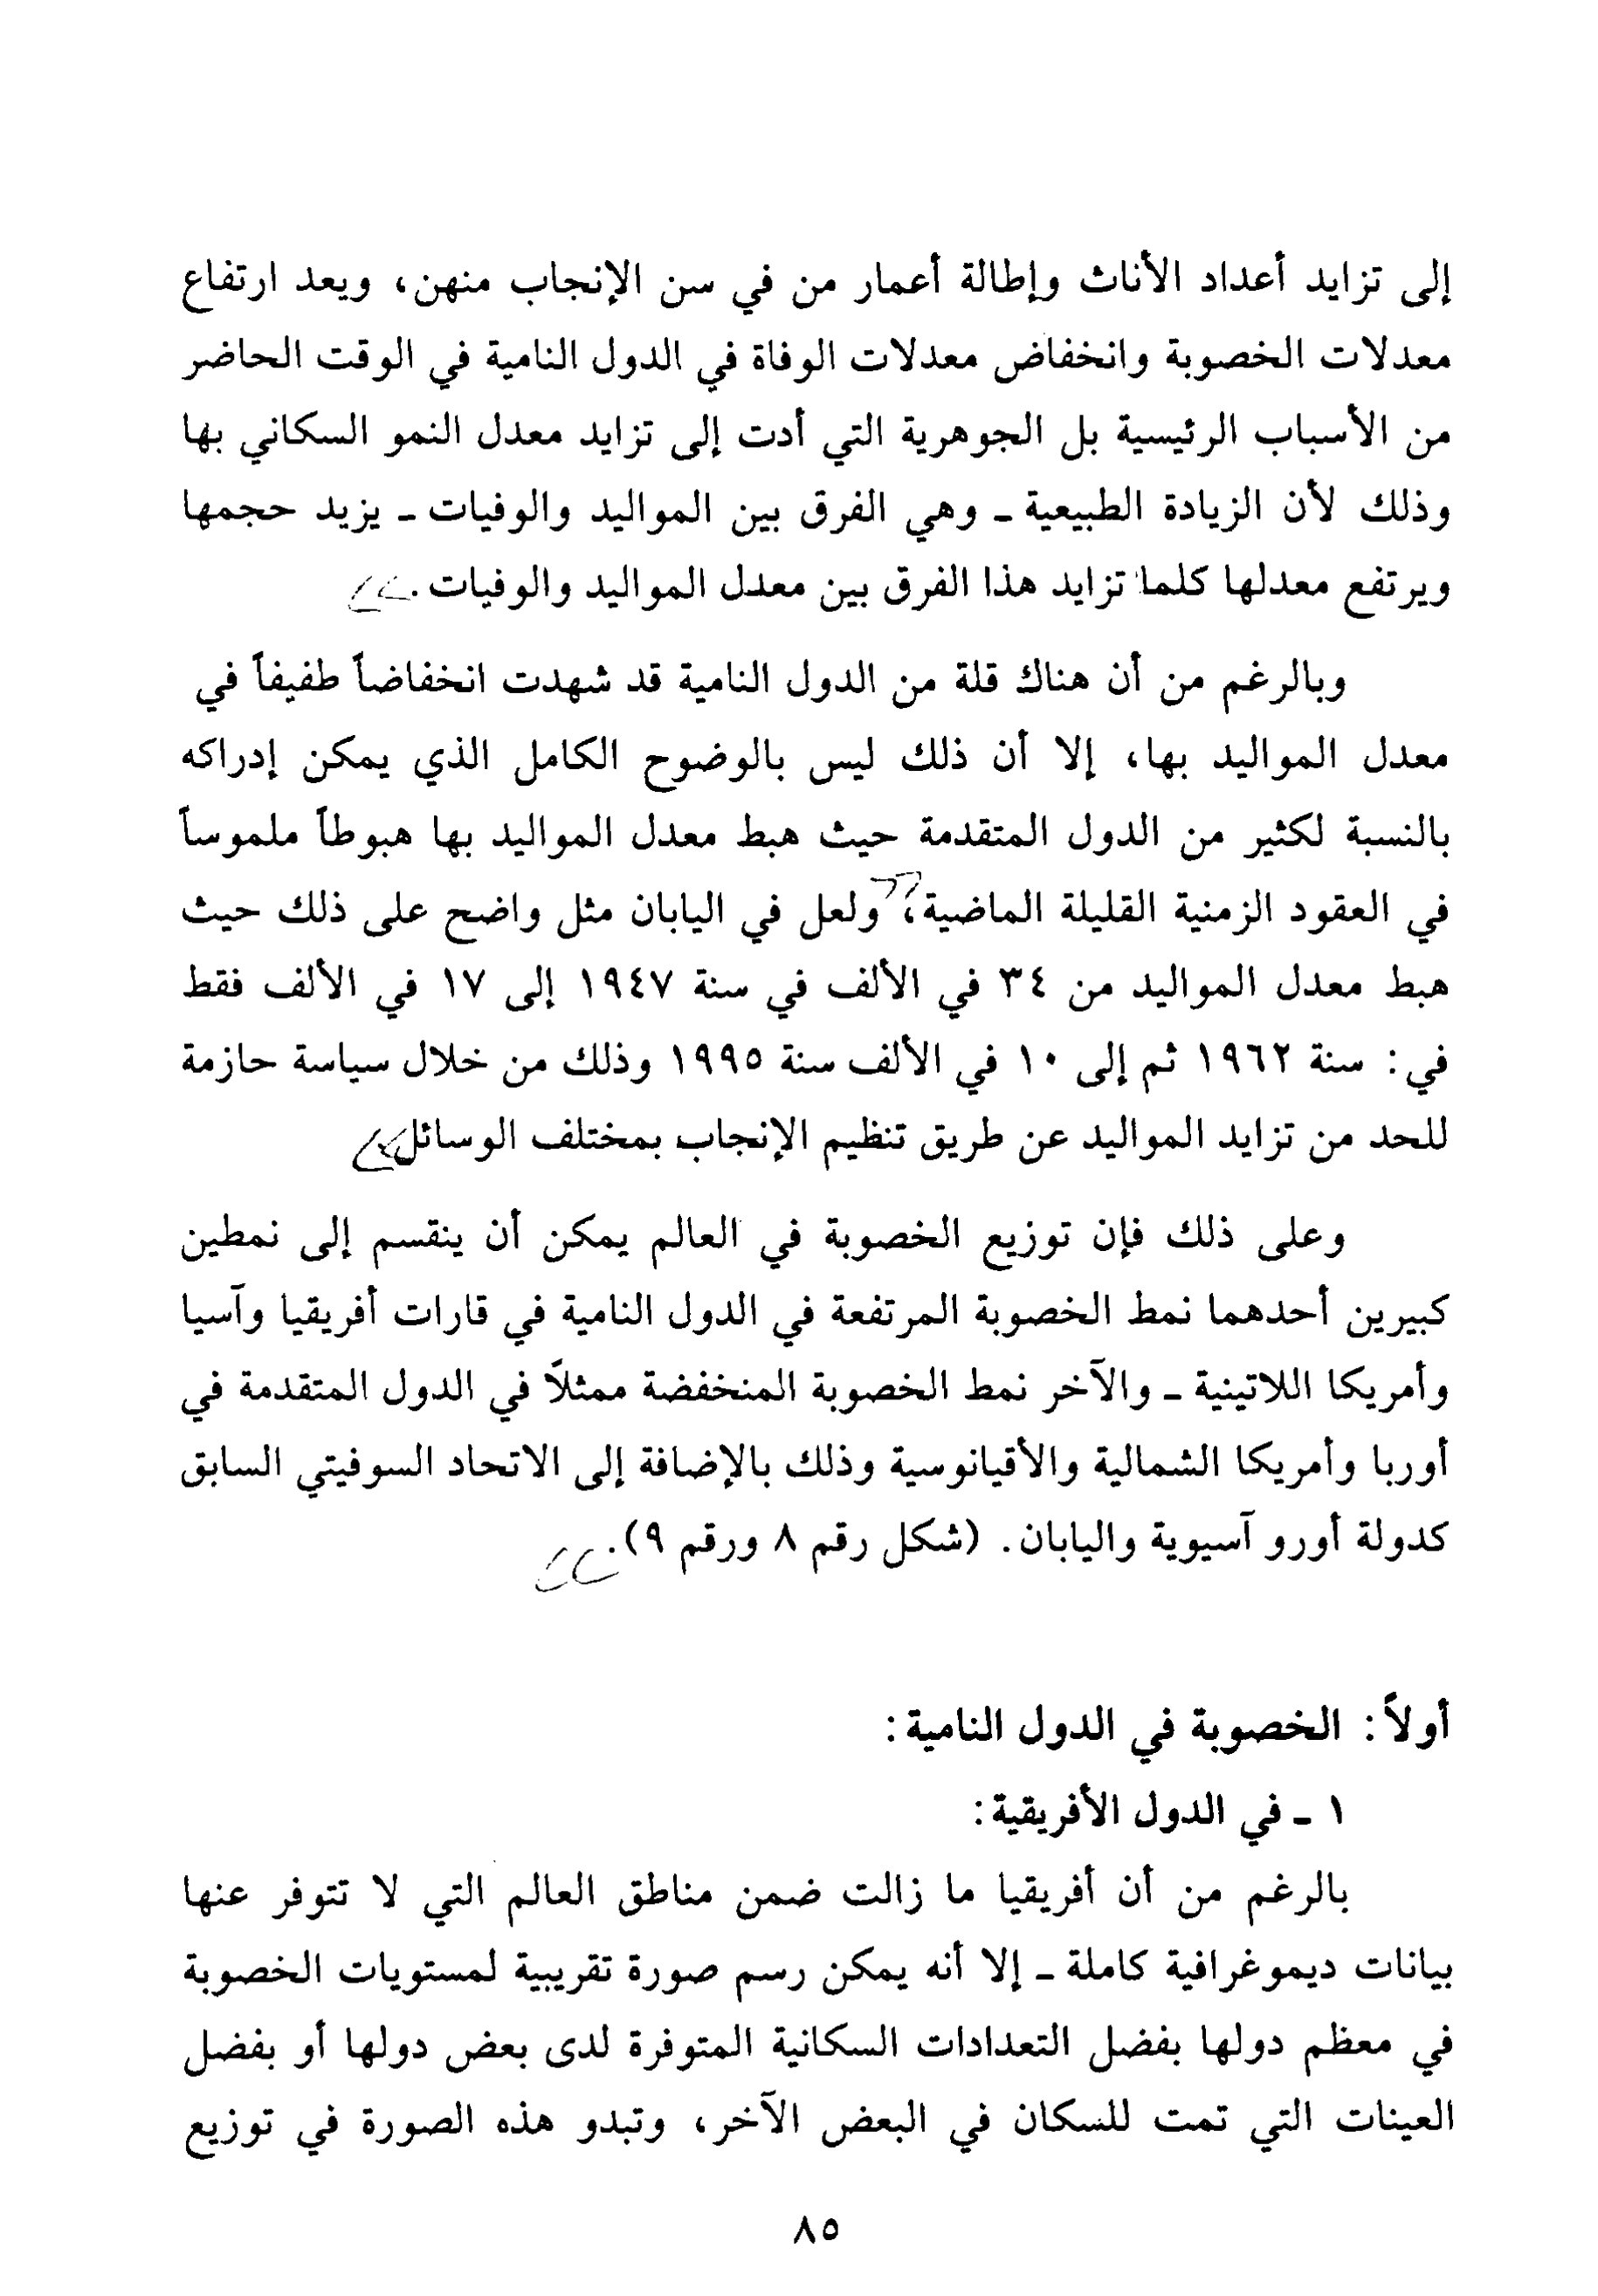 إلى تزايد أعداد الأناث وإطالة أعمار من في سن الإنجاب منهن، ويعد ارتفاع
معدلات الخصوبة وانخفاض معدلات الوفاة في الدول النامية في الوقت الحاضر
من الأسباب الرئيسية بل الجوهرية التي أدت إلى تزايد معدل النمو السكاني بها
وذلك لأن الزيادة الطبيعية ـ وهي الفرق بين المواليد والوفيات ـ يزيد حجمها
ويرتفع معدلها كلما تزايد هذا الفرق بين معدل المواليد والوفيات.
وبالرغم من أن هناك قلة من الدول النامية قد شهدت انخفاضاً طفيفاً في
معدل المواليد بها، إلا أن ذلك ليس بالوضوح الكامل الذي يمكن إدراكه
بالنسبة لكثير من الدول المتقدمة حيث هبط معدل المواليد بها هبوطاً ملموساً
في العقود الزمنية القليلة الماضية، ولعل في اليابان مثل واضح على ذلك حيث
هبط معدل المواليد من ٣٤ في الألف في سنة ١٩٤٧ إلى ١٧ في الألف فقط
في: سنة ١٩٦٢ ثم إلى ١٠ في الألف سنة ١٩٩٥ وذلك من خلال سياسة حازمة
للحد من تزايد المواليد عن طريق تنظيم الإنجاب بمختلف الوسائل
وعلى ذلك فإن توزيع الخصوبة في العالم يمكن أن ينقسم إلى نمطين
كبيرين أحدهما نمط الخصوبة المرتفعة في الدول النامية في قارات أفريقيا وآسيا
وأمريكا اللاتينية ـ والآخر نمط الخصوبة المنخفضة ممثلاً في الدول المتقدمة في
أوربا وأمريكا الشمالية والأقيانوسية وذلك بالإضافة إلى الاتحاد السوفيتي السابق
كدولة أورو آسيوية واليابان. (شكل رقم ٨ ورقم ٩).
أولاً: الخصوبة في الدول النامية:
١ ـ في الدول الأفريقية:
بالرغم من أن أفريقيا ما زالت ضمن مناطق العالم التي لا تتوفر عنها
بيانات ديموغرافية كاملة ـ إلا أنه يمكن رسم صورة تقريبية لمستويات الخصوبة
في معظم دولها بفضل التعدادات السكانية المتوفرة لدى بعض دولها أو بفضل
العينات التي تمت للسكان في البعض الآخر، وتبدو هذه الصورة في توزيع
٨٥